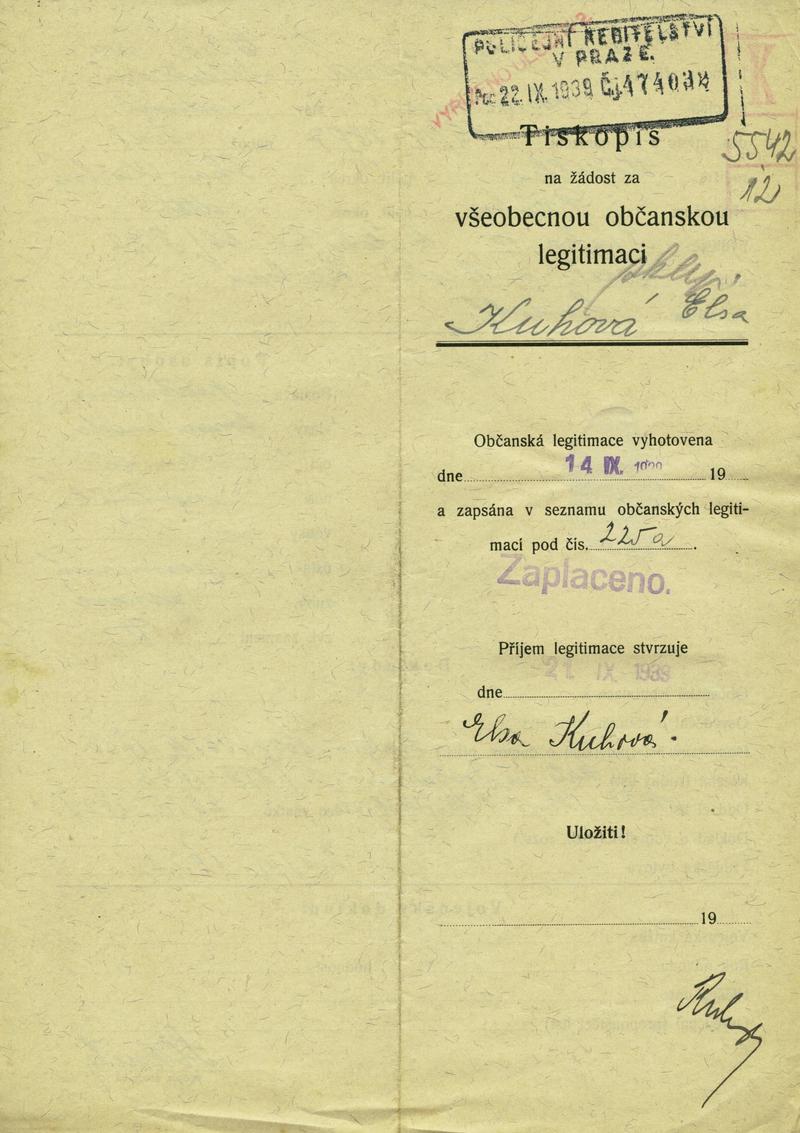 POLICEJNÍ ŘEDITELSTVÍ
V PRAZE.
22. IX. 1939
5542
12
Tiskopis
na žádost za
všeobecnou občanskou
legitimaci
Kuhová Elsa
Občanská legitimace vyhotovena
dne 14 IX. 19
a zapsána v seznamu občanských legiti-
mací pod čís. .
Zaplaceno.
Příjem legitimace stvrzuje
21 IX 1939
dne
Elsa Kuhová.
Uložiti!
19